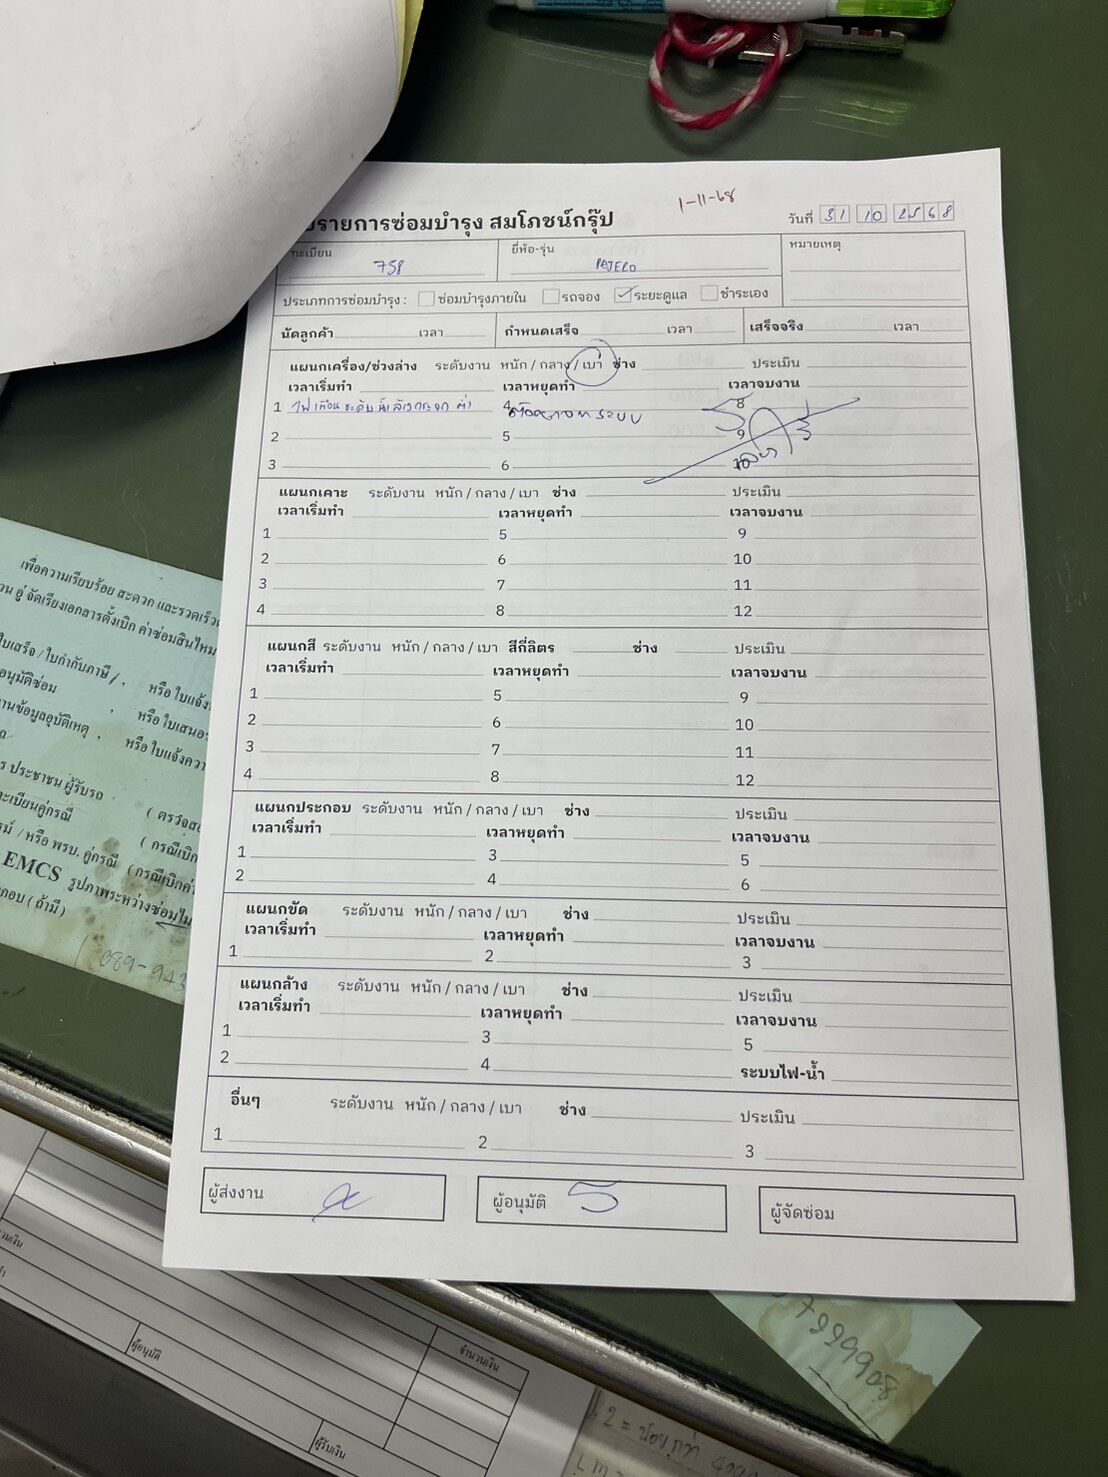 1-11-68
รายการซ่อมบำรุง สมโภชน์กรุ๊ป
วันที่ 31 10 2568
ทะเบียน 758 ยี่ห้อ-รุ่น PAJERO หมายเหตุ
ประเภทการซ่อมบำรุง : ซ่อมบำรุงภายใน รถจอง ระยะดูแล ชำระเอง
นัดลูกค้า เวลา กำหนดเสร็จ เวลา เสร็จจริง เวลา
แผนกเครื่อง/ช่วงล่าง ระดับงาน หนัก / กลาง / เบา ช่าง ประเมิน
เวลาเริ่มทำ เวลาหยุดทำ เวลาจบงาน
1 ไฟเตือนระดับน้ำ 4 ระบบ 8
2 5 9
3 6
แผนกเคาะ ระดับงาน หนัก / กลาง / เบา ช่าง ประเมิน
เวลาเริ่มทำ เวลาหยุดทำ เวลาจบงาน
1 5 9
2 6 10
3 7 11
4 8 12
แผนกสี ระดับงาน หนัก / กลาง / เบา สีกี่ลิตร ช่าง ประเมิน
เวลาเริ่มทำ เวลาหยุดทำ เวลาจบงาน
1 5 9
2 6 10
3 7 11
4 8 12
แผนกประกอบ ระดับงาน หนัก / กลาง / เบา ช่าง ประเมิน
เวลาเริ่มทำ เวลาหยุดทำ เวลาจบงาน
1 3 5
2 4 6
แผนกขัด ระดับงาน หนัก / กลาง / เบา ช่าง ประเมิน
เวลาเริ่มทำ เวลาหยุดทำ เวลาจบงาน
1 2 3
แผนกล้าง ระดับงาน หนัก / กลาง / เบา ช่าง ประเมิน
เวลาเริ่มทำ เวลาหยุดทำ เวลาจบงาน
1 3 5
2 4 ระบบไฟ-น้ำ
อื่นๆ ระดับงาน หนัก / กลาง / เบา ช่าง ประเมิน
1 2 3
ผู้ส่งงาน ผู้อนุมัติ ผู้จัดซ่อม
เพื่อความเรียบร้อย สะดวก และรวดเร็ว
อู่ จัดเรียงเอกสารตั้งเบิก ค่าซ่อมสินไหม
ใบเสร็จ / ใบกำกับภาษี / , หรือ ใบแจ้ง
อนุมัติซ่อม , หรือ ใบเสนอ
งานข้อมูลอุบัติเหตุ , หรือ ใบแจ้งความ
ประชาชน ผู้รับรถ ( ตรวจ
ทะเบียนคู่กรณี ( กรณีเบิก
/ หรือ พรบ. คู่กรณี (กรณีเบิก
EMCS รูปภาพระหว่างซ่อม
(ถ้ามี)
089-943
จำนวนเงิน
ผู้อนุมัติ
ผู้รับเงิน
2 = น้อยกว่า